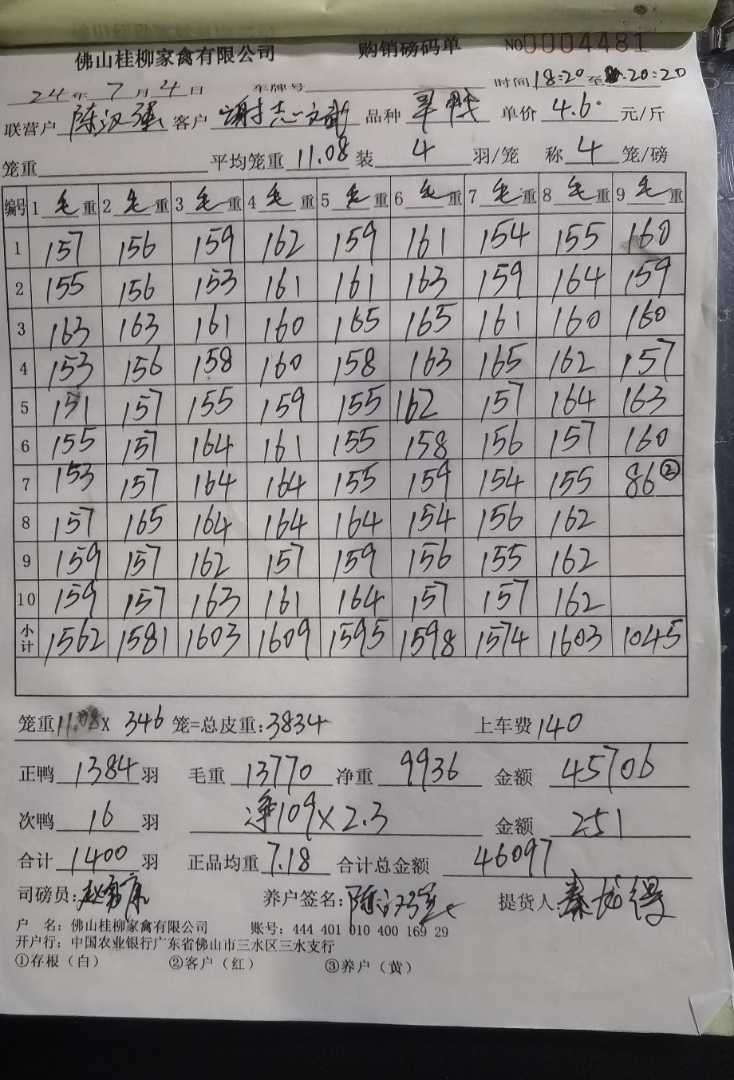 佛山桂柳家禽有限公司 购销磅码单 NO 0004481
24年7月4日 车牌号 时间18:20至20:20
联营户 陈汉强 客户 谢志斌 品种 单价 4.6 元/斤
笼重 平均笼重 11.08 装 4 羽/笼 称 4 笼/磅
编号 1 毛 重 2 毛 重 3 毛 重 4 毛 重 5 毛 重 6 毛 重 7 毛 重 8 毛 重 9 毛 重
1 157 156 159 162 159 161 154 155 160
2 155 156 153 161 161 163 159 164 159
3 163 163 161 160 165 165 161 160 160
4 153 156 158 160 158 163 165 162 157
5 151 157 155 159 155 162 157 164 163
6 155 157 164 161 155 158 156 157 160
7 153 157 164 164 155 159 154 155 86②
8 157 165 164 164 164 154 156 162
9 159 157 162 157 159 156 155 162
10 159 157 163 161 164 157 157 162
小计 1562 1581 1603 1609 1595 1598 1574 1603 1045
笼重 11.08 X 346 笼=总皮重:3834 上车费 140
正鸭 1384 羽 毛重 13770 净重 9936 金额 45706
次鸭 16 羽 净109×2.3 金额 251
合计 1400 羽 正品均重 7.18 合计总金额 46097
司磅员: 养户签名: 陈汉强 提货人:
户 名: 佛山桂柳家禽有限公司 账号: 444 401 010 400 169 29
开户行: 中国农业银行广东省佛山市三水区三水支行
①存根(白) ②客户(红) ③养户(黄)